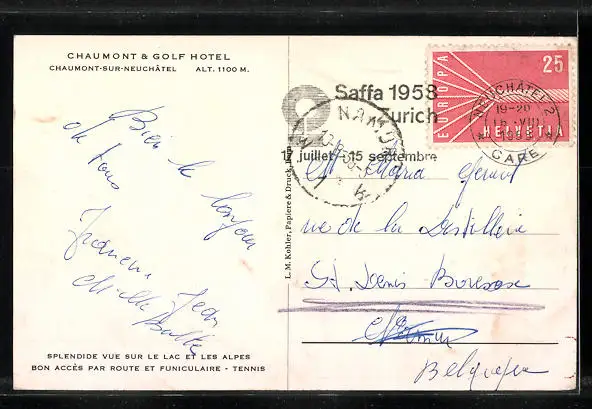 CHAUMONT & GOLF HOTEL
CHAUMONT-SUR-NEUCHÂTEL ALT. 1100 M.
Bien le bonjour
de tous
Jean
SPLENDIDE VUE SUR LE LAC ET LES ALPES
BON ACCÈS PAR ROUTE ET FUNICULAIRE - TENNIS
L. M. Kohler, Papiere & Druck
Saffa 1958
Zurich
17 juillet - 15 septembre
NAMUR
EUROPA
25
HELVETIA
NEUCHÂTEL 2
19-20
VIII
GARE
Maria Gerard
rue de la Distillerie
St Denis Bovesse
Belgique